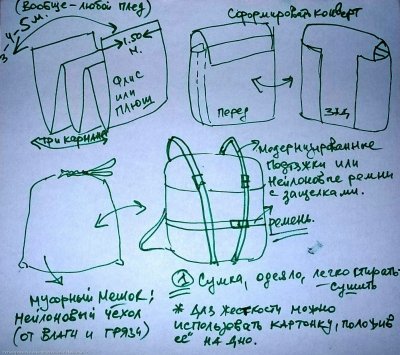 (Вообще-любой плед)
3-4-5 м.
>1.50<
м.
Флис
или
плюш
три кармана
Сформировать конверт
перед
зад
модернизированные
подтяжки или
нейлоновые ремни
с защелками.
ремень.
мусорный мешок!
нейлоновый чехол
(от влаги и грязи)
① Сумка, одеяло, легко стирать-
сушить
* Для жесткости можно
использовать картонку, положив
её на дно.